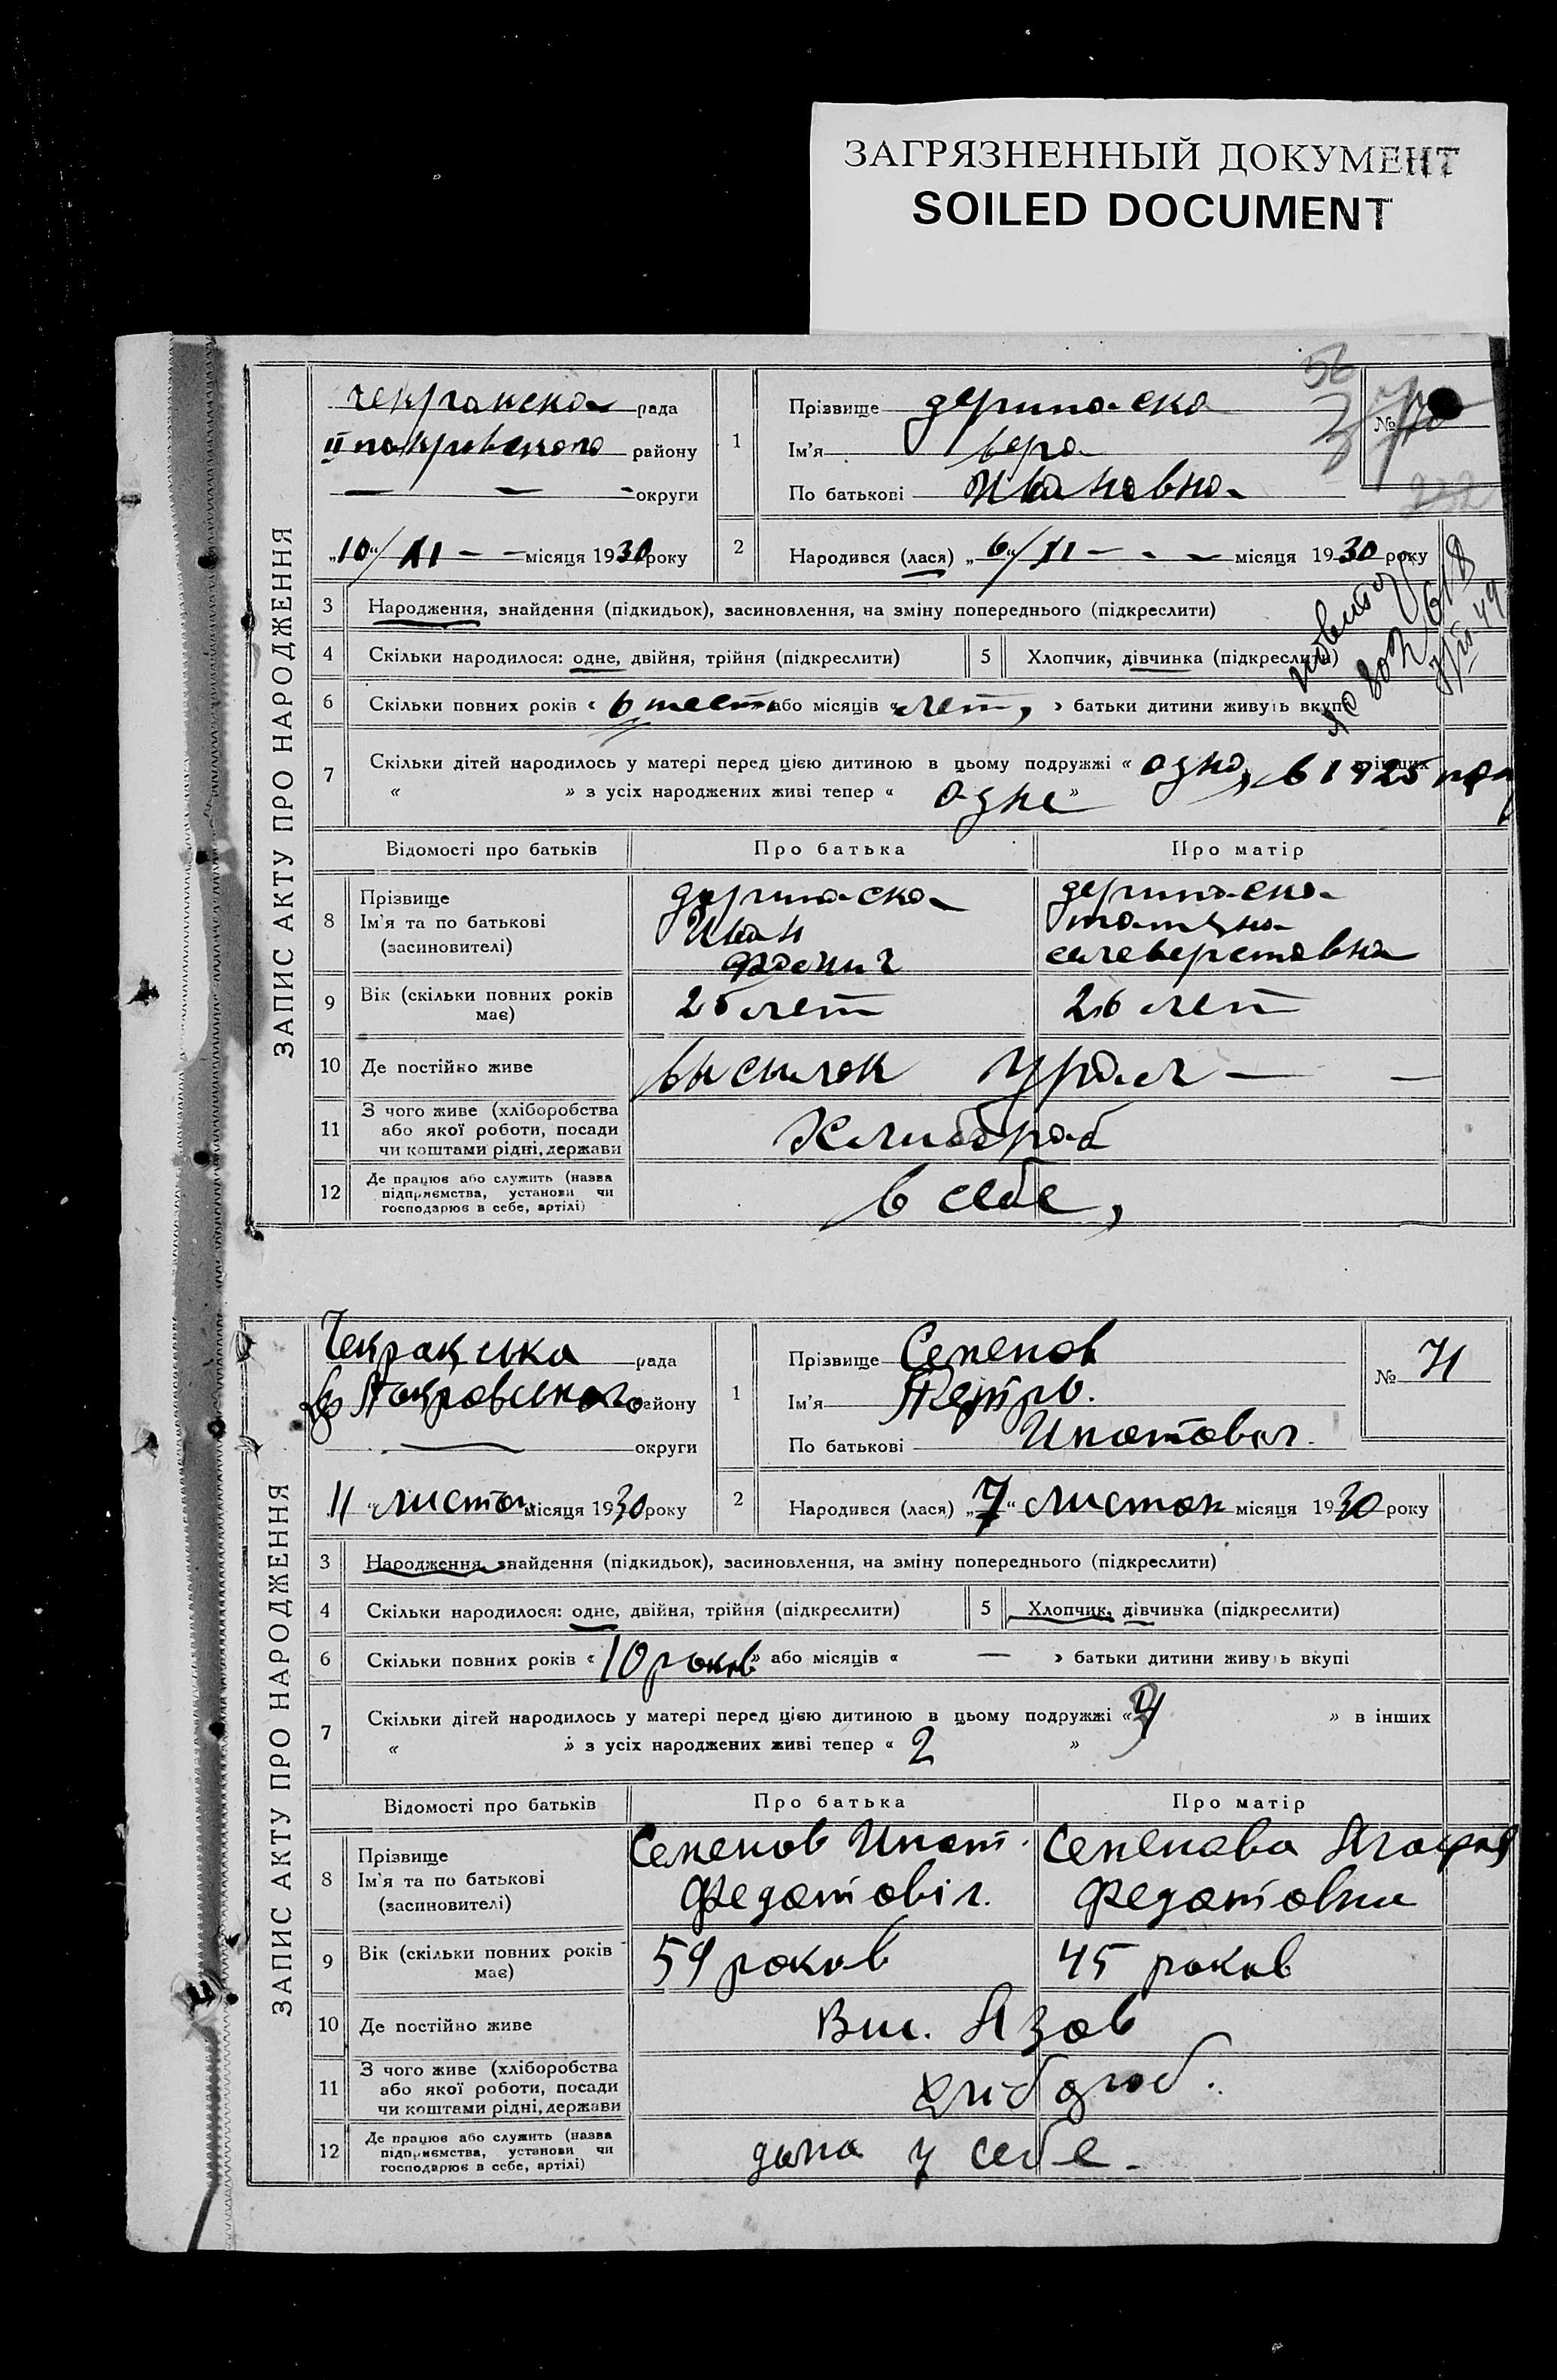 ЗАГРЯЗНЕННЫЙ ДОКУМЕНТ
SOILED DOCUMENT
ЗАПИС АКТУ ПРО НАРОДЖЕННЯ
рада
району
округи
„10“/XI — — місяця 1930 року
1
Прізвище дерипаско
Ім'я вера
По батькові Ивановна
№
2
Народився (лася) „6“/XI — - — місяця 1930 року
3 Народження, знайдення (підкидьок), засиновлення, на зміну попереднього (підкреслити)
4 Скільки народилося: одне, двійня, трійня (підкреслити)
5 Хлопчик, дівчинка (підкреслити)
6 Скільки повних років « 6 шесть або місяців « лет, » батьки дитини живуть вкупі
7 Скільки дітей народилось у матері перед цією дитиною в цьому подружжі « одно, в 1925 в інших
« » з усіх народжених живі тепер « одне »
Відомості про батьків
Про батька
Про матір
8 Прізвище
Ім'я та по батькові
(засиновителі)
дерипаско
Иван
дерипаско
татяна
селеверстовна
9 Вік (скільки повних років
має)
25 лет
26 лет
10 Де постійно живе
высилок
11 З чого живе (хліборобства
або якої роботи, посади
чи коштами рідні, держави
Хлибороб
12 Де працює або служить (назва
підприємства, установи чи
господарює в себе, артілі)
в себе,
ЗАПИС АКТУ ПРО НАРОДЖЕННЯ
рада
Покровського району
— округи
„11“ листоп місяця 1930 року
1
Прізвище Семенов
Ім'я Петро.
По батькові Ипатович.
№ 71
2
Народився (лася) „7“ листоп місяця 1930 року
3 Народження, знайдення (підкидьок), засиновлення, на зміну попереднього (підкреслити)
4 Скільки народилося: одне, двійня, трійня (підкреслити)
5 Хлопчик, дівчинка (підкреслити)
6 Скільки повних років « 10 років » або місяців « — » батьки дитини живуть вкупі
7 Скільки дітей народилось у матері перед цією дитиною в цьому подружжі « » в інших
« » з усіх народжених живі тепер « 2 »
Відомості про батьків
Про батька
Про матір
8 Прізвище
Ім'я та по батькові
(засиновителі)
Семенов Ипат
Федотовіч.
Семенова
Федотовни
9 Вік (скільки повних років
має)
59 років
45 років
10 Де постійно живе
Вис. Азов
11 З чого живе (хліборобства
або якої роботи, посади
чи коштами рідні, держави
12 Де працює або служить (назва
підприємства, установи чи
господарює в себе, артілі)
дома у себе.